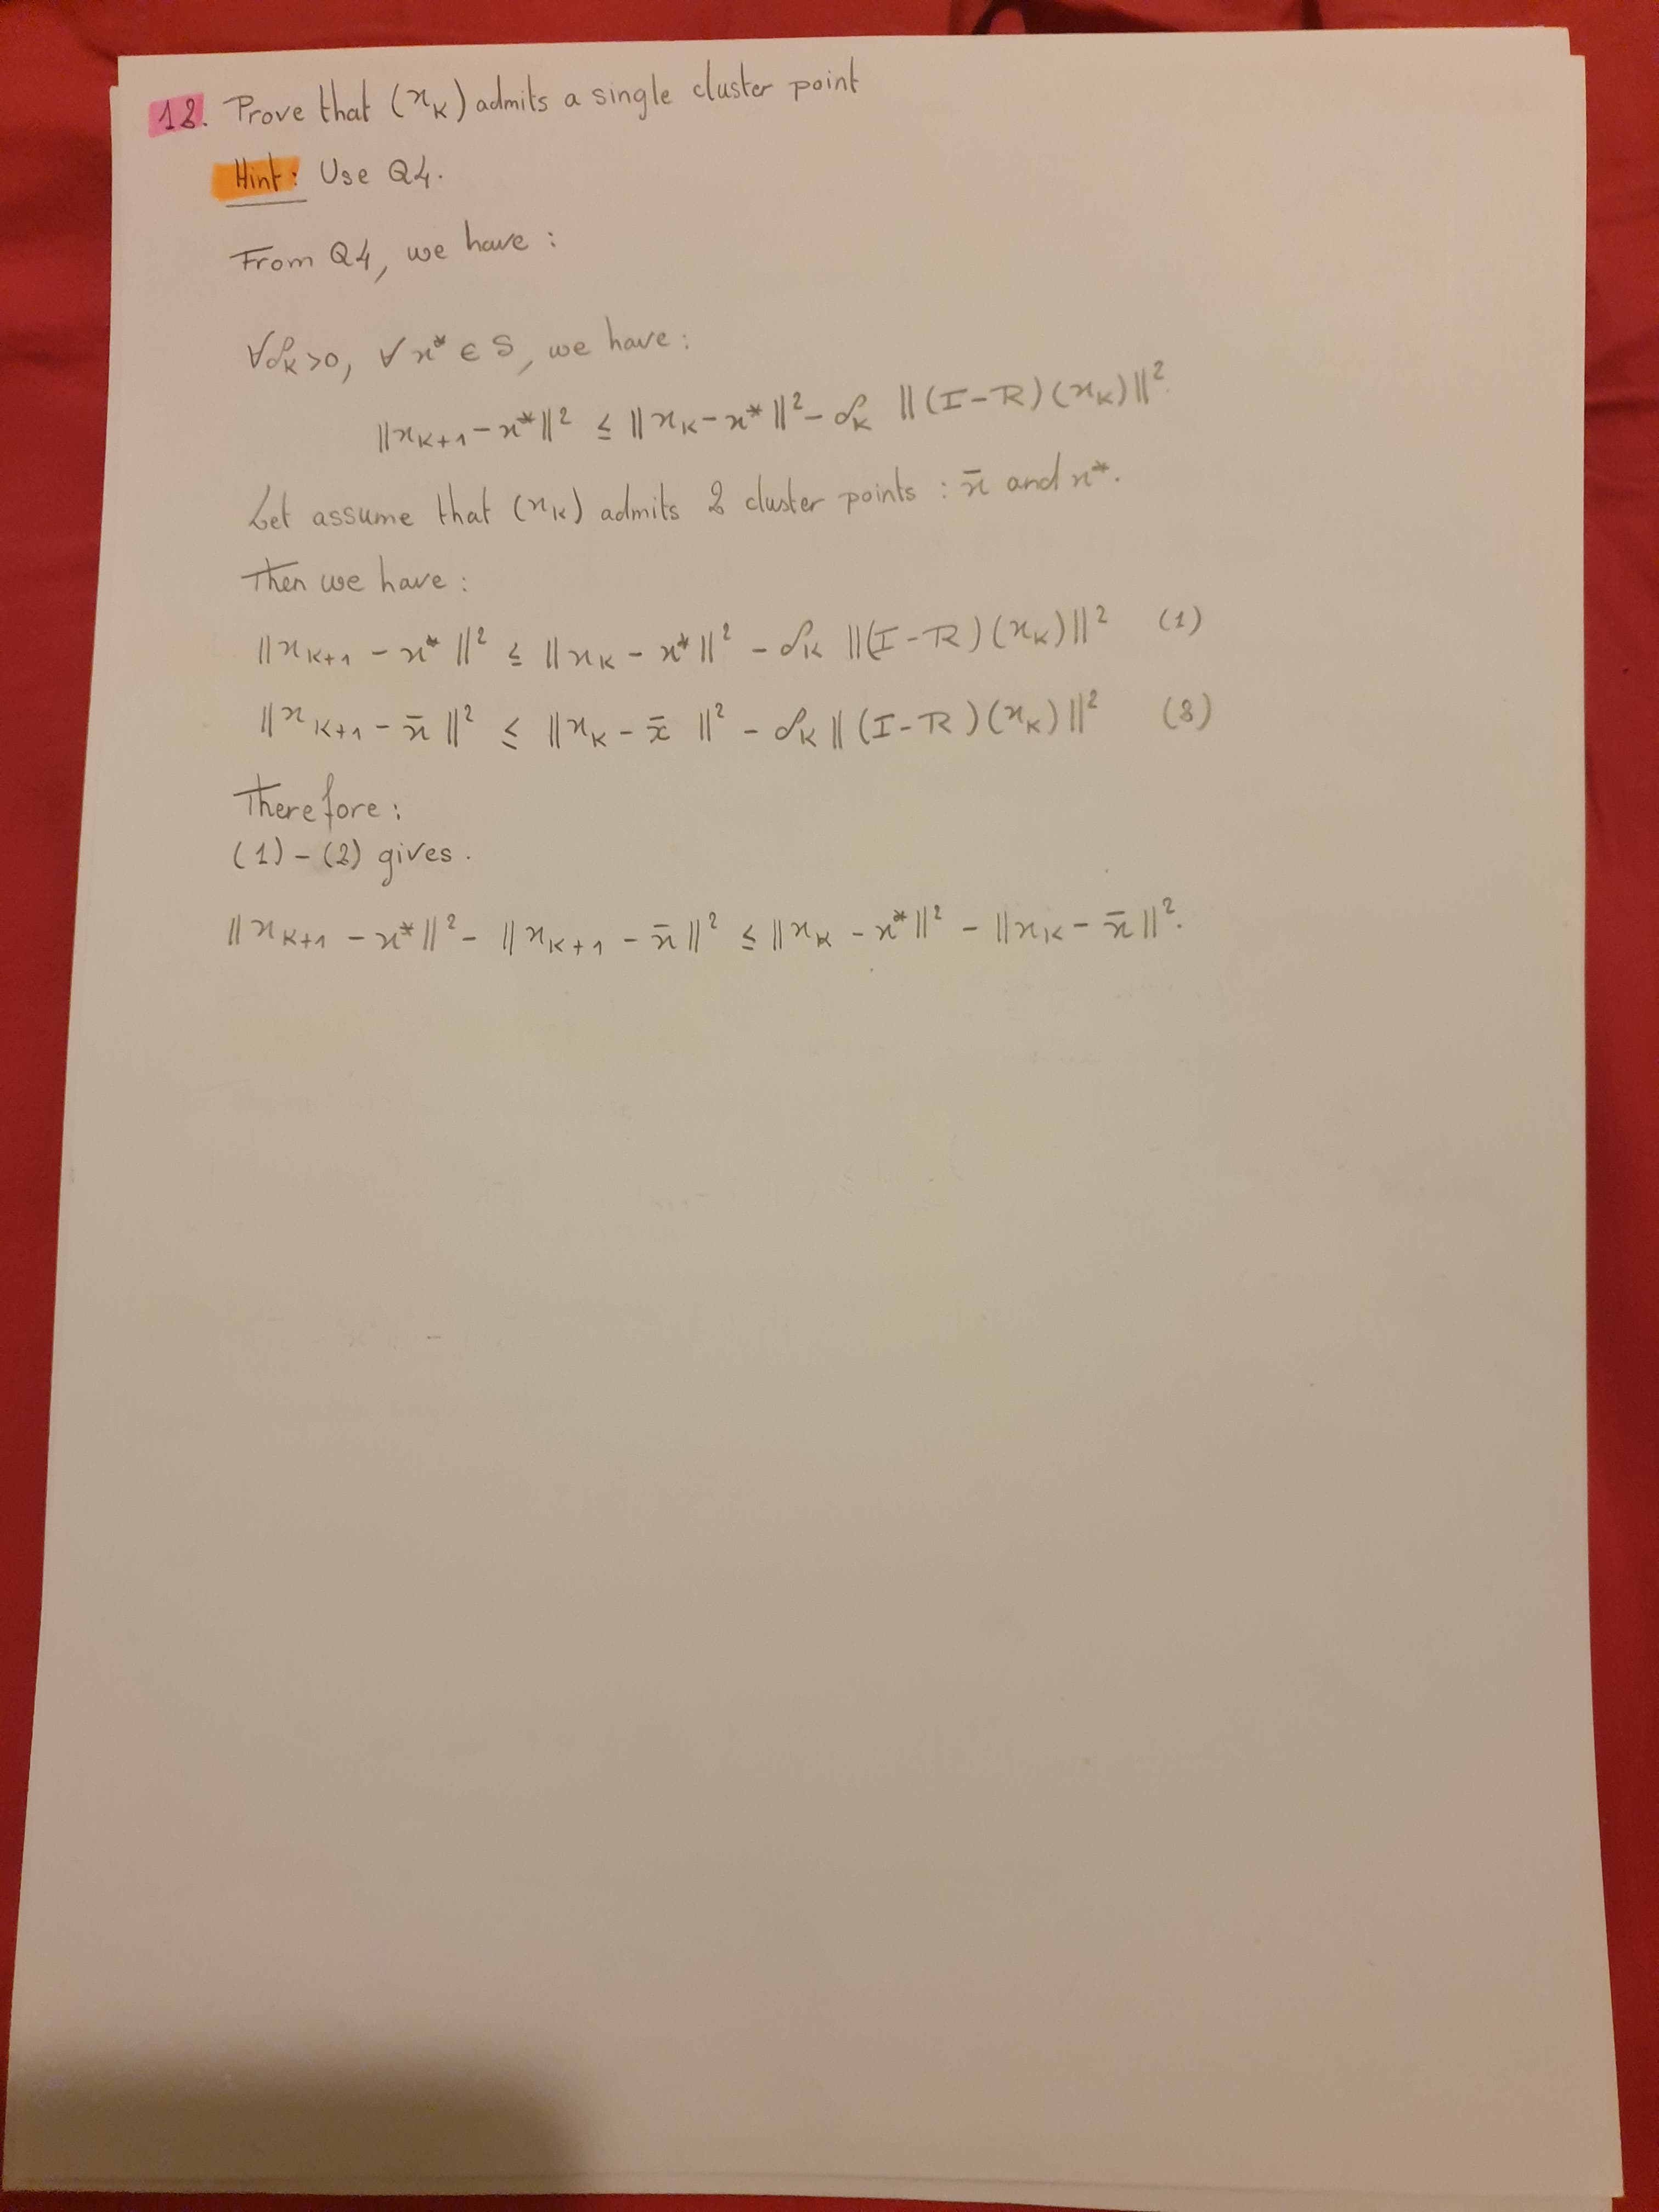 12. Prove that (xₖ) admits a single cluster point
Hint: Use Q4.
From Q4, we have :
∀αₖ>0, ∀ x* ∈ S, we have :
||xₖ₊₁ - x*||² ≤ ||xₖ - x*||² - αₖ ||(I-R)(xₖ)||².
Let assume that (xₖ) admits 2 cluster points : x̄ and x*.
Then we have :
||xₖ₊₁ - x*||² ≤ ||xₖ - x*||² - αₖ ||(I-R)(xₖ)||² (1)
||xₖ₊₁ - x̄||² ≤ ||xₖ - x̄||² - αₖ ||(I-R)(xₖ)||² (2)
Therefore :
(1) - (2) gives.
||xₖ₊₁ - x*||² - ||xₖ₊₁ - x̄||² ≤ ||xₖ - x*||² - ||xₖ - x̄||².